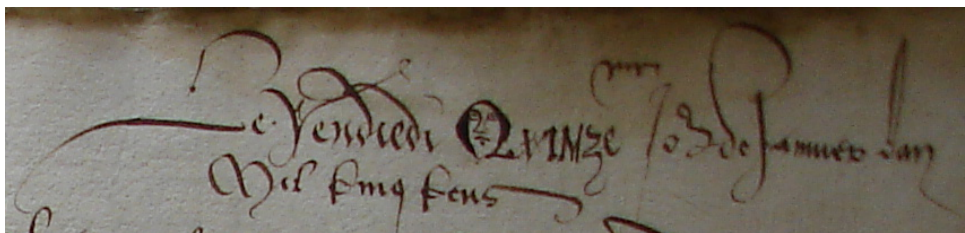 Le Vendredi QvINZEme Jor de Januier lan
Mil kinq kens